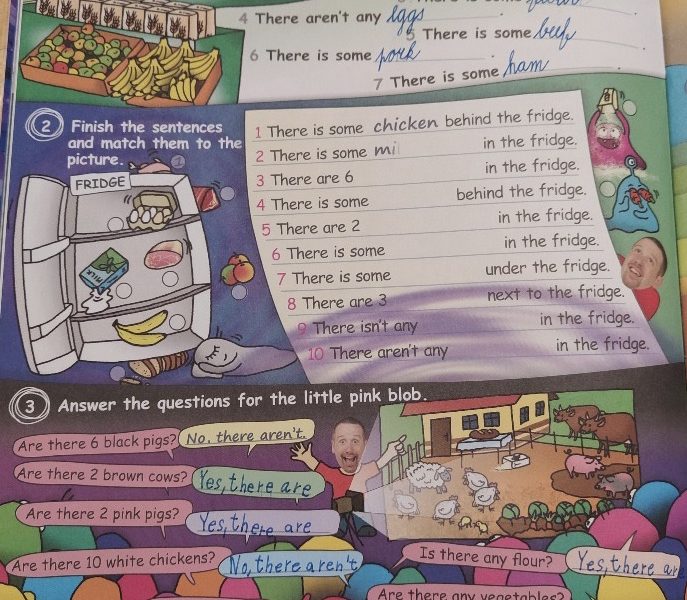 4 There aren't any eggs.
5 There is some beef.
6 There is some pork.
7 There is some ham.
2 Finish the sentences
and match them to the
picture.
FRIDGE
MILK
1 There is some chicken behind the fridge.
2 There is some mi in the fridge.
3 There are 6 in the fridge.
4 There is some behind the fridge.
5 There are 2 in the fridge.
6 There is some in the fridge.
7 There is some under the fridge.
8 There are 3 next to the fridge.
9 There isn't any in the fridge.
10 There aren't any in the fridge.
3 Answer the questions for the little pink blob.
Are there 6 black pigs? No, there aren't.
Are there 2 brown cows? Yes, there are
Are there 2 pink pigs? Yes, there are
Are there 10 white chickens? No, there aren't
Is there any flour? Yes, there are
Are there any vegetables?